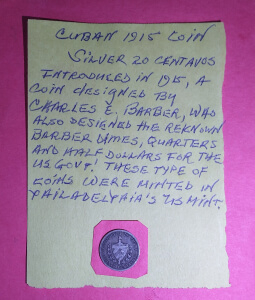 CUBAN 1915 COIN
SILVER 20 CENTAVOS
INTRODUCED IN 1915, A
COIN DESIGNED BY
CHARLES E. BARBER, WHO
ALSO DESIGNED THE REKNOWN
BARBER DIMES, QUARTERS
AND HALF DOLLARS FOR THE
US GOVT! THESE TYPE OF
COINS WERE MINTED IN
PHILADELPHIA'S US MINT.